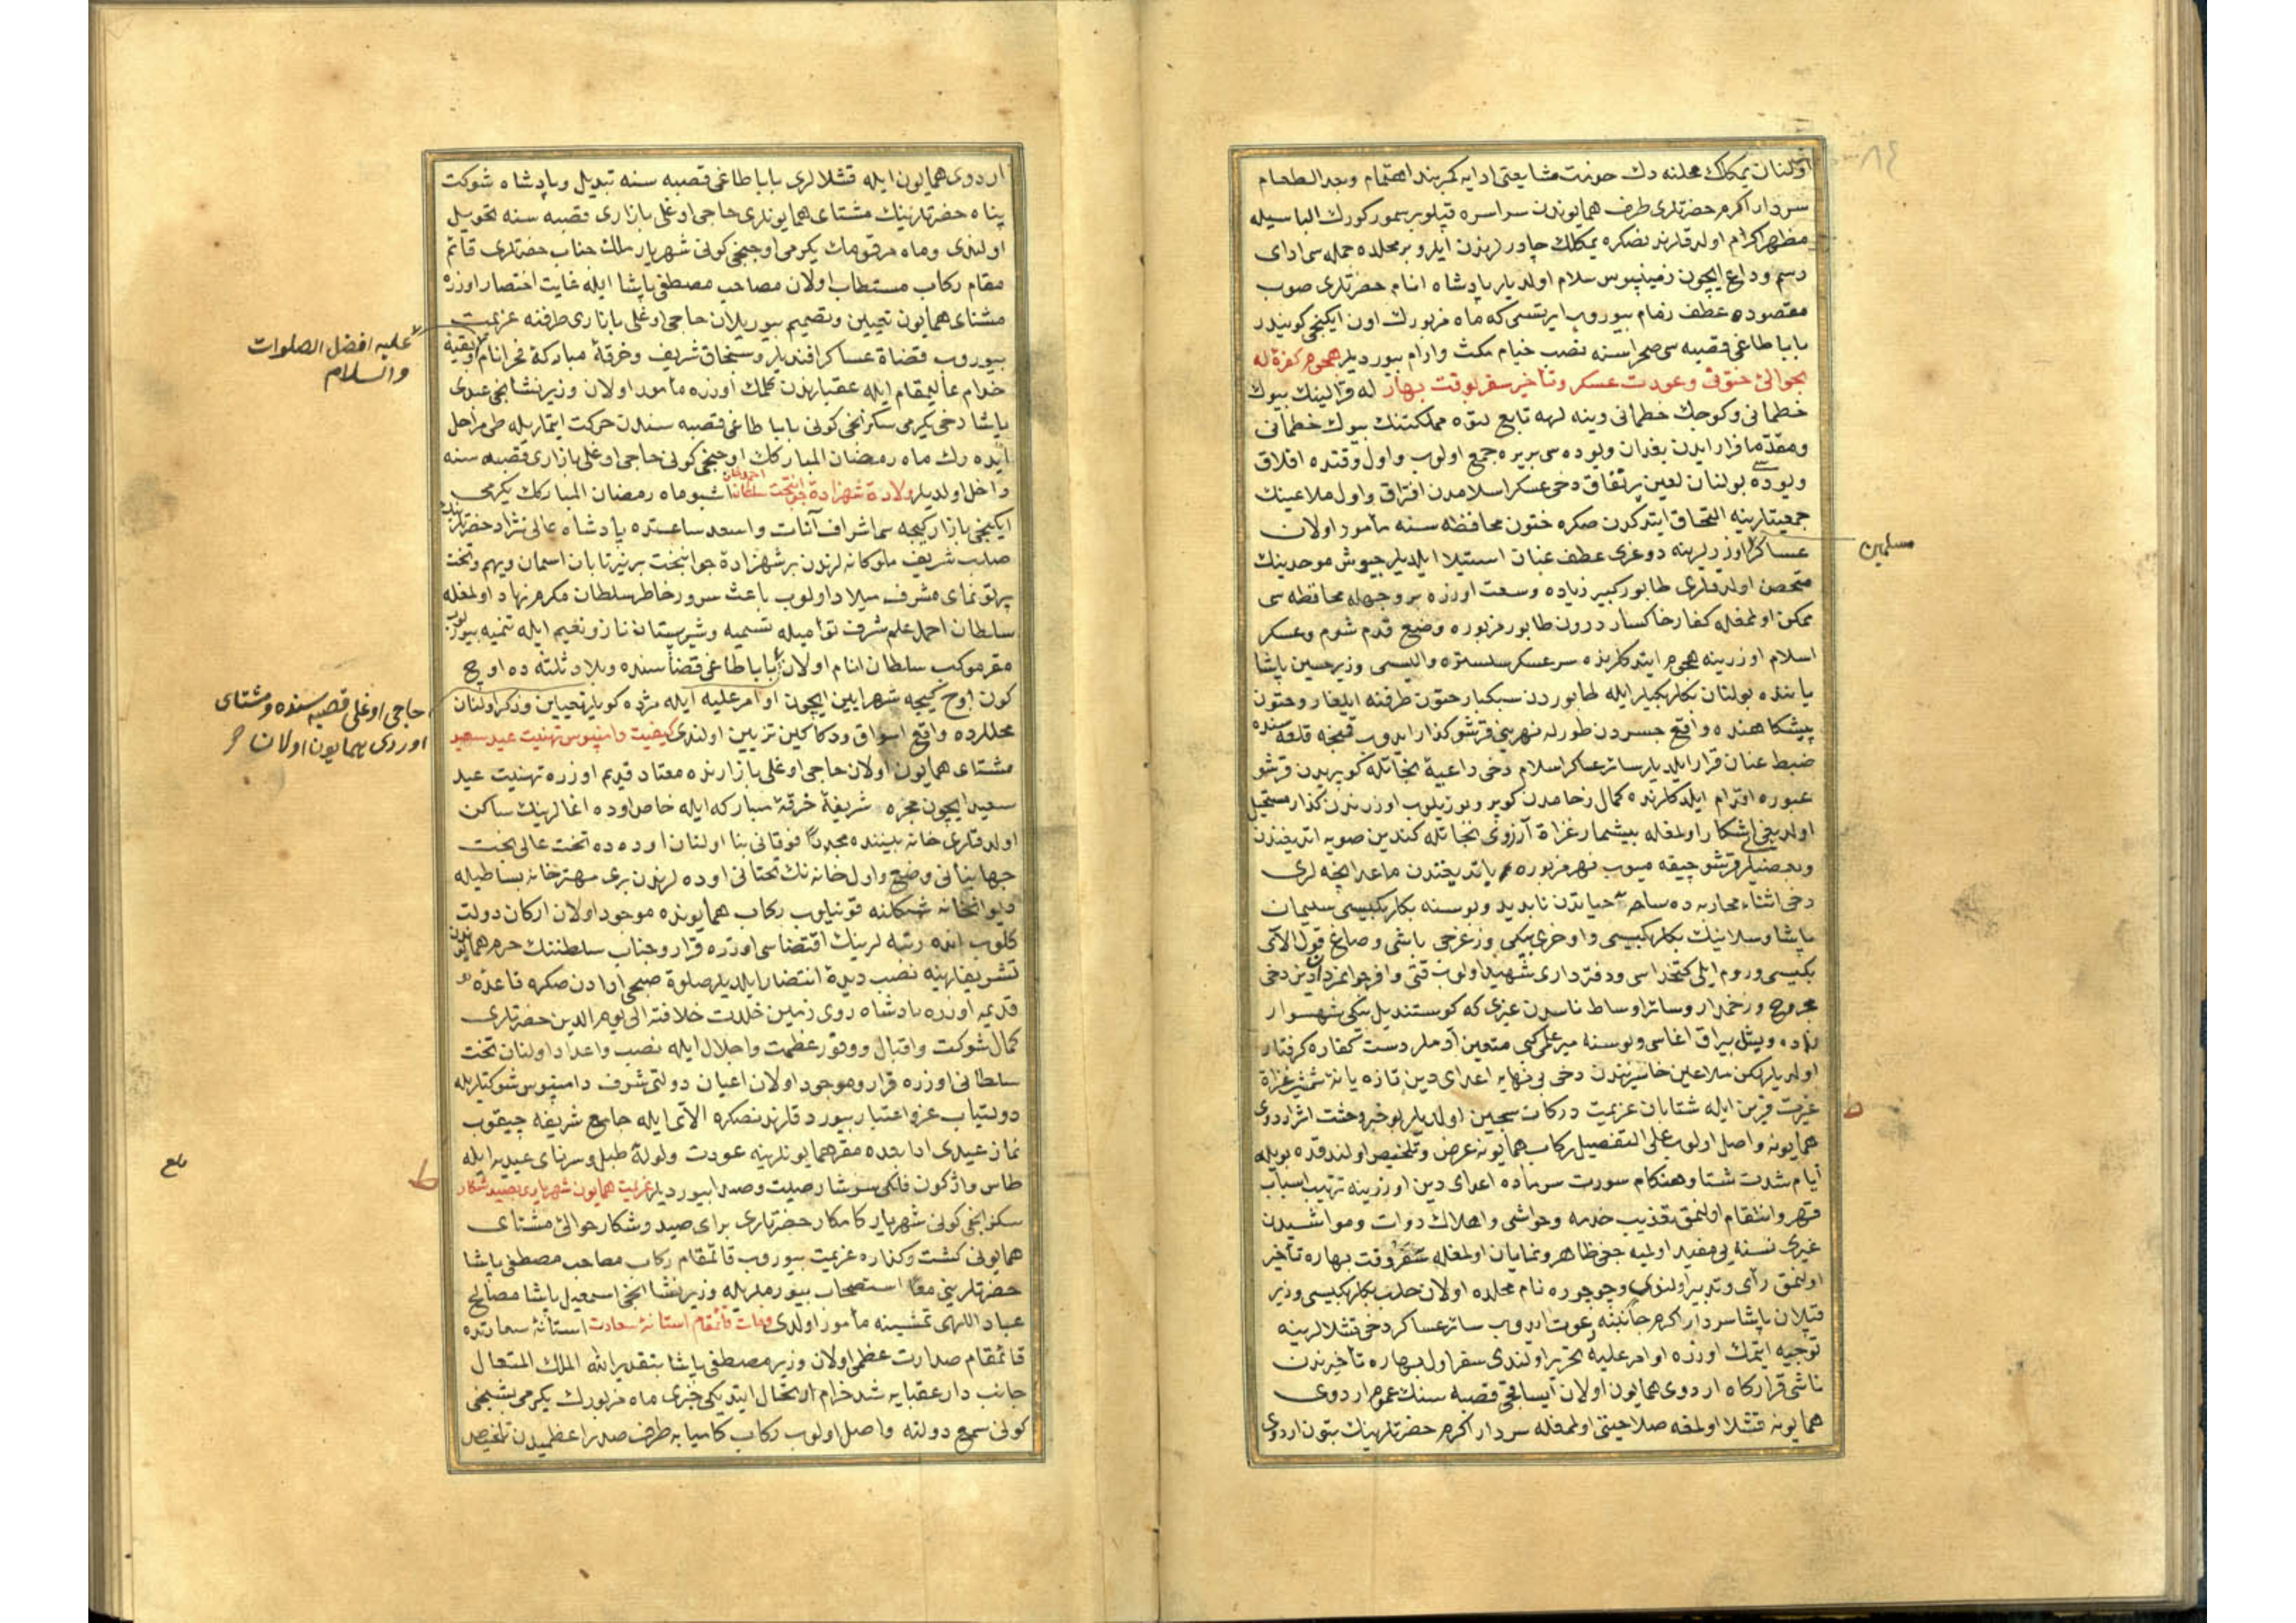 اولنان يمكلك محلنه دك حونت مشايعتى ادايه كمربند اهتمام وبعد الطعام
سردار اكرم حضرتلرى طرف همايوندن سراسره قپلو بر سمور كورك الباسيله
مظهر اكرام اولدقلرندنصكره يمكلك چادرلرندن ايلرو بر محلده جمله سى اداى
رسم وداع ايچون زمينبوس سلام اولديلر پادشاه انام حضرتلرى صوب
مقصوده عطف زمام بيوروب ايرتسى كه ماه مزبورك اون ايكنجى كونيدر
بابا طاغى قصبه سى صحراسنه نصب خيام مكث وارام بيورديلر هجوم كفرۀ له
بحوالئ ختون وعودت عسكر وتأخير سفر بوقت بهار له قرالينك بيوك
خطمانى وكوچك خطمانى وينه لهه تابع لتوه مملكتنك بيوك خطمانى
ومقدما فرار ايدن بغدان ويوده سى بر يره جمع اولوب واول وقتده افلاق
ويوده سى بولنان لعين پر نفاق دخى عسكر اسلامدن افتراق واول ملاعينك
جمعيتلرينه التحاق ايتدكدن صكره ختون محافظه سنه مأمور اولان
عساكر اوزرلرينه دوغرى عطف عنان استيلا ايلديلر جيوش موحدينك
مسلمين
متحصن اولدقلرى طابور كبير زياده وسعت اوزره بر وجهله محافظه سى
ممكن اولمغله كفار خاكسار درون طابور مزبوره وضع قدم شوم وعسكر
اسلام اوزرينه هجوم ايتدكلرنده سرعسكر سلستره واليسى وزير حسين پاشا
ياننده بولنان بكلربكيلر ايله طابوردن سبكبار ختون طرفنه ايلغار وختون
پيشكاهنده واقع جسردن طورله نهرينى قرشو كذار ايدوب قمنچه قلعه سنده
ضبط عنان قرار ايلديلر سائر عساكر اسلام دخى داعيۀ نجاتله كوپريدن قرشو
عبوره اقدام ايلدكلرنده كمال زحامدن كوپرو بوزيلوب اوزرندن كذار مستحيل
اولديغى اشكار اولمغله بيشمار غزاة آرزوى نجاتله كندين صويه اتديغندن
وبعضيلر قرشو چيقه ميوب نهر مزبوره ياتديغندن ماعدا نيجه لرى
دخى اثناء محاربه ده ساحۀ حياتدن نابديد وبوسنه بكلربكيسى سليمان
پاشا وسلانيك بكلربكيسى واوخرى بيكى وزغرجى باشى وصاغ قول الاى
بكيسى وروم ايلى كتخداسى ودفتردارى شهيد اولوب
مجروح وزخمدار وسائر اوساط ناسدن غيرى كه كوستنديل بيكى شهسوار
زاده ويشل بيراق اغاسى وبوسنه ميرعلمى كبى متعين آدملر دست كفاره كرفتار
اولديلر لكن ملاعين خاسريندن دخى بى نهايه اعداى دين تازيانۀ شمشير غزاة
غيرت قرين ايله شتابان عزيمت دركات سجين اولديلر بو خبر وحشت اثر اردوى
همايونه واصل اولوب على التفصيل ركاب همايونه عرض وتلخيص اولندقده بويله
ايام شدت شتا وهنكام سورت سرماده اعداى دين اوزرينه ترتيب اسباب
قهر وانتقام اولنمق تعذيب خدمه وحواشى واهلاك دواب ومواشيدن
غيرى نسنه يى مفيد اولميه جغى ظاهر ونمايان اولمغله سفر وقت بهاره تأخير
اولنمق رأى وتدبير اولندى وجوجوره نام محلده اولان حلب بكلربكيسى وزير
قپلان پاشا سردار اكرم جانبنه دعوت ايدوب سائر عساكر دخى قشلالرينه
توجيه ايتمك اوزره اوامر عليه تحرير اولندى سفر اول بهاره تأخيرندن
ناشى قراركاه اردوى همايون اولان ايساقجى قصبه سنك عموم اردوى
همايونه قشلا اولمغه صلاحيتى اولمغله سردار اكرم حضرتلرينك بتون اردوى
اردوى همايون ايله قشلالرى بابا طاغى قصبه سنه تبديل وپادشاه شوكت
پناه حضرتلرينك مشتاى همايونلرى حاجى اوغلى بازارى قصبه سنه تحويل
اولندى وماه مرقومك يكرمى اوچنجى كونى شهريار ملك جناب حضرتلرى قائم
مقام ركاب مستطاب اولان مصاحب مصطفى پاشا ايله غايت اختصار اوزره
مشتاى همايون تعيين وتصميم بيوريلان حاجى اوغلى بازارى طرفنه عزيمت
بيوروب قضاة عساكر افنديلر وسنجاق شريف وخرقۀ مباركۀ فخر انام وبقية
عليه افضل الصلوات
والسلام
خدام عاليمقام ايله عقبلرندن كلمك اوزره مأمور اولان وزير نشانجى عبدى
پاشا دخى يكرمى سكزنجى كونى بابا طاغى قصبه سندن حركت ايتمريله طى مراحل
ايده رك ماه رمضان المباركك اوچنجى كونى حاجى اوغلى بازارى قصبه سنه
داخل اولديلر ولادة شهزادۀ جوانبخت سلطان احمد خان اشبو ماه رمضان المباركك يكرمى
ايكنجى بازار كيجه سى اشرف آنات واسعد ساعتده پادشاه عالى نژاد حضرتلرينك
صلب شريف ملوكانه لرندن بر شهزادۀ جوانبخت بر نير تابان اسمان ديهيم وتخت
پرتونماى مشرف ميلاد اولوب باعث سرور خاطر سلطان مكرم نهاد اولمغله
سلطان احمد علم شرف توأميله تسميه وشيرستان ناز ونعيم ايله تنميه بيوريلوب
مقر موكب سلطان انام اولان بابا طاغى قضاسنده وبلاد ثلثه ده اوچ
حاجى اوغلى قصبه سنده ومشتاى
اوردى همايون اولان
كون اوچ كيجه شهرايين ايچون اوامر عليه ايله مژده كوبلر تعيين وذكر اولنان
محللرده واقع اسواق ودكاكين تزيين اولندى كيفيت دامنبوس تهنيت عيد سعيد
مشتاى همايون اولان حاجى اوغلى بازارنده معتاد قديم اوزره تهنيت عيد
سعيد ايچون حجره شريفۀ خرقۀ مباركه ايله خاص اوده اغالرينك ساكن
اولدقلرى خانه بيننده مجددا فوقانى بنا اولنان اوده ده تخت عالى بخت
جهانبانى وضع واول خانه نك تحتانى اوده لرندن برى مهترخانه بساطيله
ديوانخانه شكلنه قونيلوب ركاب همايونده موجود اولان اركان دولت
كلوب انده رتبه لرينك اقتضاسى اوزره قرار وجناب سلطنتك حرم همايوندن
تشريفلرينه نصب ديدۀ انتظار ايلديلر صلوة صبحى ادادن صكره قاعده
قديمه اوزره پادشاه روى زمين خلدت خلافته الى يوم الدين حضرتلرى
كمال شوكت واقبال ووفور عظمت واجلال ايله نصب واعداد اولنان تخت
سلطانى اوزره قرار وموجود اولان اعيان دولتى شرف دامنبوس شوكتلريله
دولتياب عز واعتبار بيوردقلرندنصكره الاى ايله جامع شريفه چيقوب
نماز عيدى ادا بعده مقر همايونلرينه عودت ولولۀ طبل وسرناى عيديه ايله
طاس واژكون فلكى سرشار صيت وصدا بيورديلر عزيمت همايون شهريارى بصيد شكار
سكزنجى كونى شهريار كامكار حضرتلرى براى صيد وشكار حوالئ مشتاى
همايونى كشت وكذاره عزيمت بيوروب قائمقام ركاب مصاحب مصطفى پاشا
حضرتلرينى معا استصحاب بيورملريله وزير نشانجى اسمعيل پاشا مصالح
عباد اللهى تمشيته مأمور اولدى وفات قائمقام استانۀ سعادت استانۀ سعادتده
قائمقام صدارت عظمى اولان وزير مصطفى پاشا بتقدير الله الملك المتعال
جانب دار عقبايه شد خرام ارتحال ايتديكى خبرى ماه مزبورك يكرمى بشنجى
كونى سمع دولته واصل اولوب ركاب كاميابه طرف صدر اعظميدن تلخيص